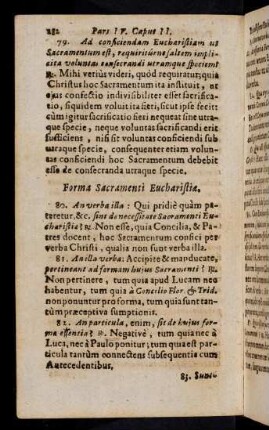 282 Pars IV. Caput II.
79. Ad conficiendam Eucharistiam ut
Sacramentum est, requiriturne saltem impli-
cita voluntas consecrandi utramque speciem?
R. Mihi veriùs videri, quòd requiratur; quia
Christus hoc Sacramentum ita instituit, ut
ejus confectio indivisibiliter esset sacrifica-
tio, siquidem voluit ita fieri, sicut ipse fecit:
cùm igitur sacrificatio fieri nequeat sine utra-
que specie, neque voluntas sacrificandi erit
sufficiens, nisi sit voluntas conficiendi sub
utraque specie, ac proinde neque voluntas
conficiendi hoc Sacramentum debebit
esse de consecranda utraque specie.
Forma Sacramenti Eucharistiæ.
80. An verba illa: Qui pridiè quàm pa-
teretur, &c. sint de necessitate Sacramenti Eu-
charistiæ? R. Non esse, quia Concilia, & Pa-
tres docent, hoc Sacramentum confici per
verba Christi, qualia non sunt verba illa.
81. An illa verba: Accipite & manducate,
pertineant ad formam hujus Sacramenti? R.
Non pertinere, tum quia apud Lucam non
habentur, tum quia à Concilio Flor. & Trid.
non ponuntur pro forma, tum quia sunt tan-
tùm præceptiva sumptionis.
82. An particula, enim, sit de hujus for-
mæ essentia? R. Negativè, tum quia nec à
Luca, nec à Paulo ponitur; tum quia est par-
ticula tantùm connectens subsequentia cum
Antecedentibus.
83.